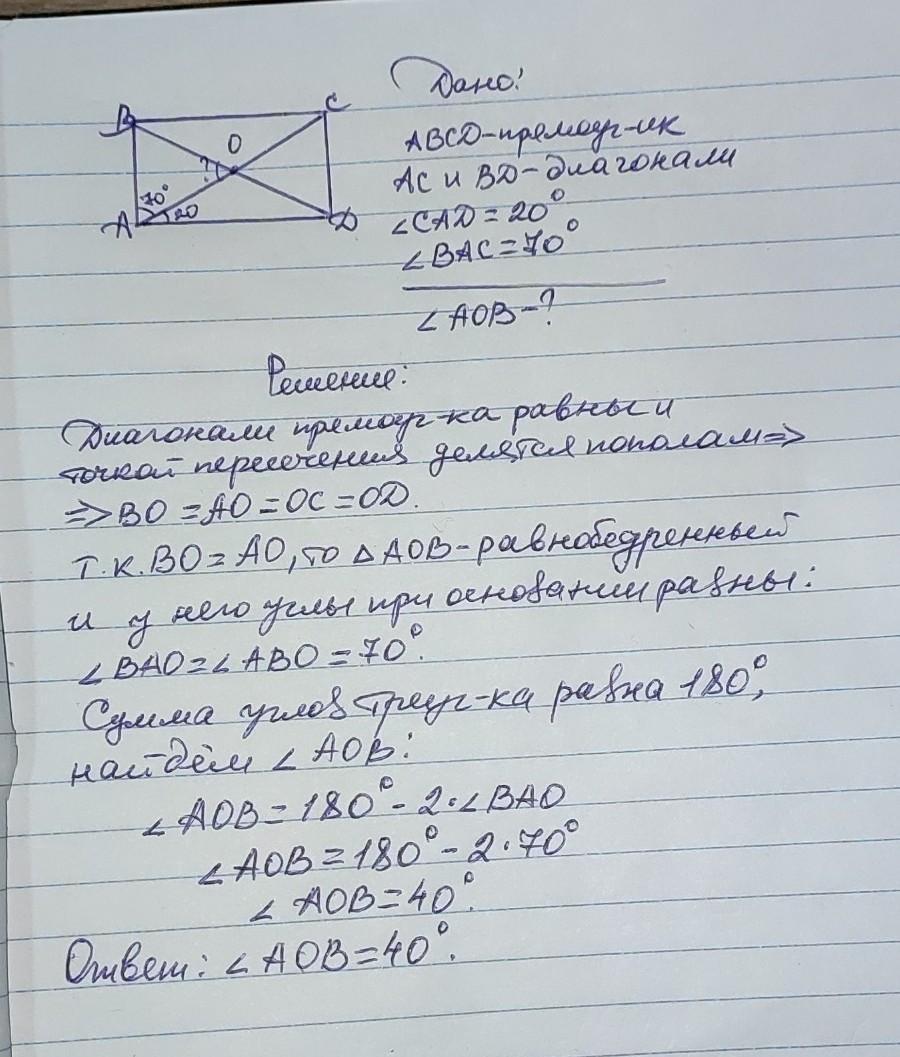 B
C
O
?
70°
20
A
D
Дано:
ABCD-прямоуг-ик
AC и BD-диагонали
∠CAD=20°
∠BAC=70°
∠AOB-?
Решение:
Диагонали прямоуг-ка равны и
точкой пересечения делятся пополам=>
=>BO=AO=OC=OD.
т.к.BO=AO,то △AOB-равнобедренный
и у него углы при основании равны:
∠BAO=∠ABO=70°.
Сумма углов треуг-ка равна 180°,
найдём ∠AOB:
∠AOB=180°-2·∠BAO
∠AOB=180°-2·70°
∠AOB=40°.
Ответ: ∠AOB=40°.